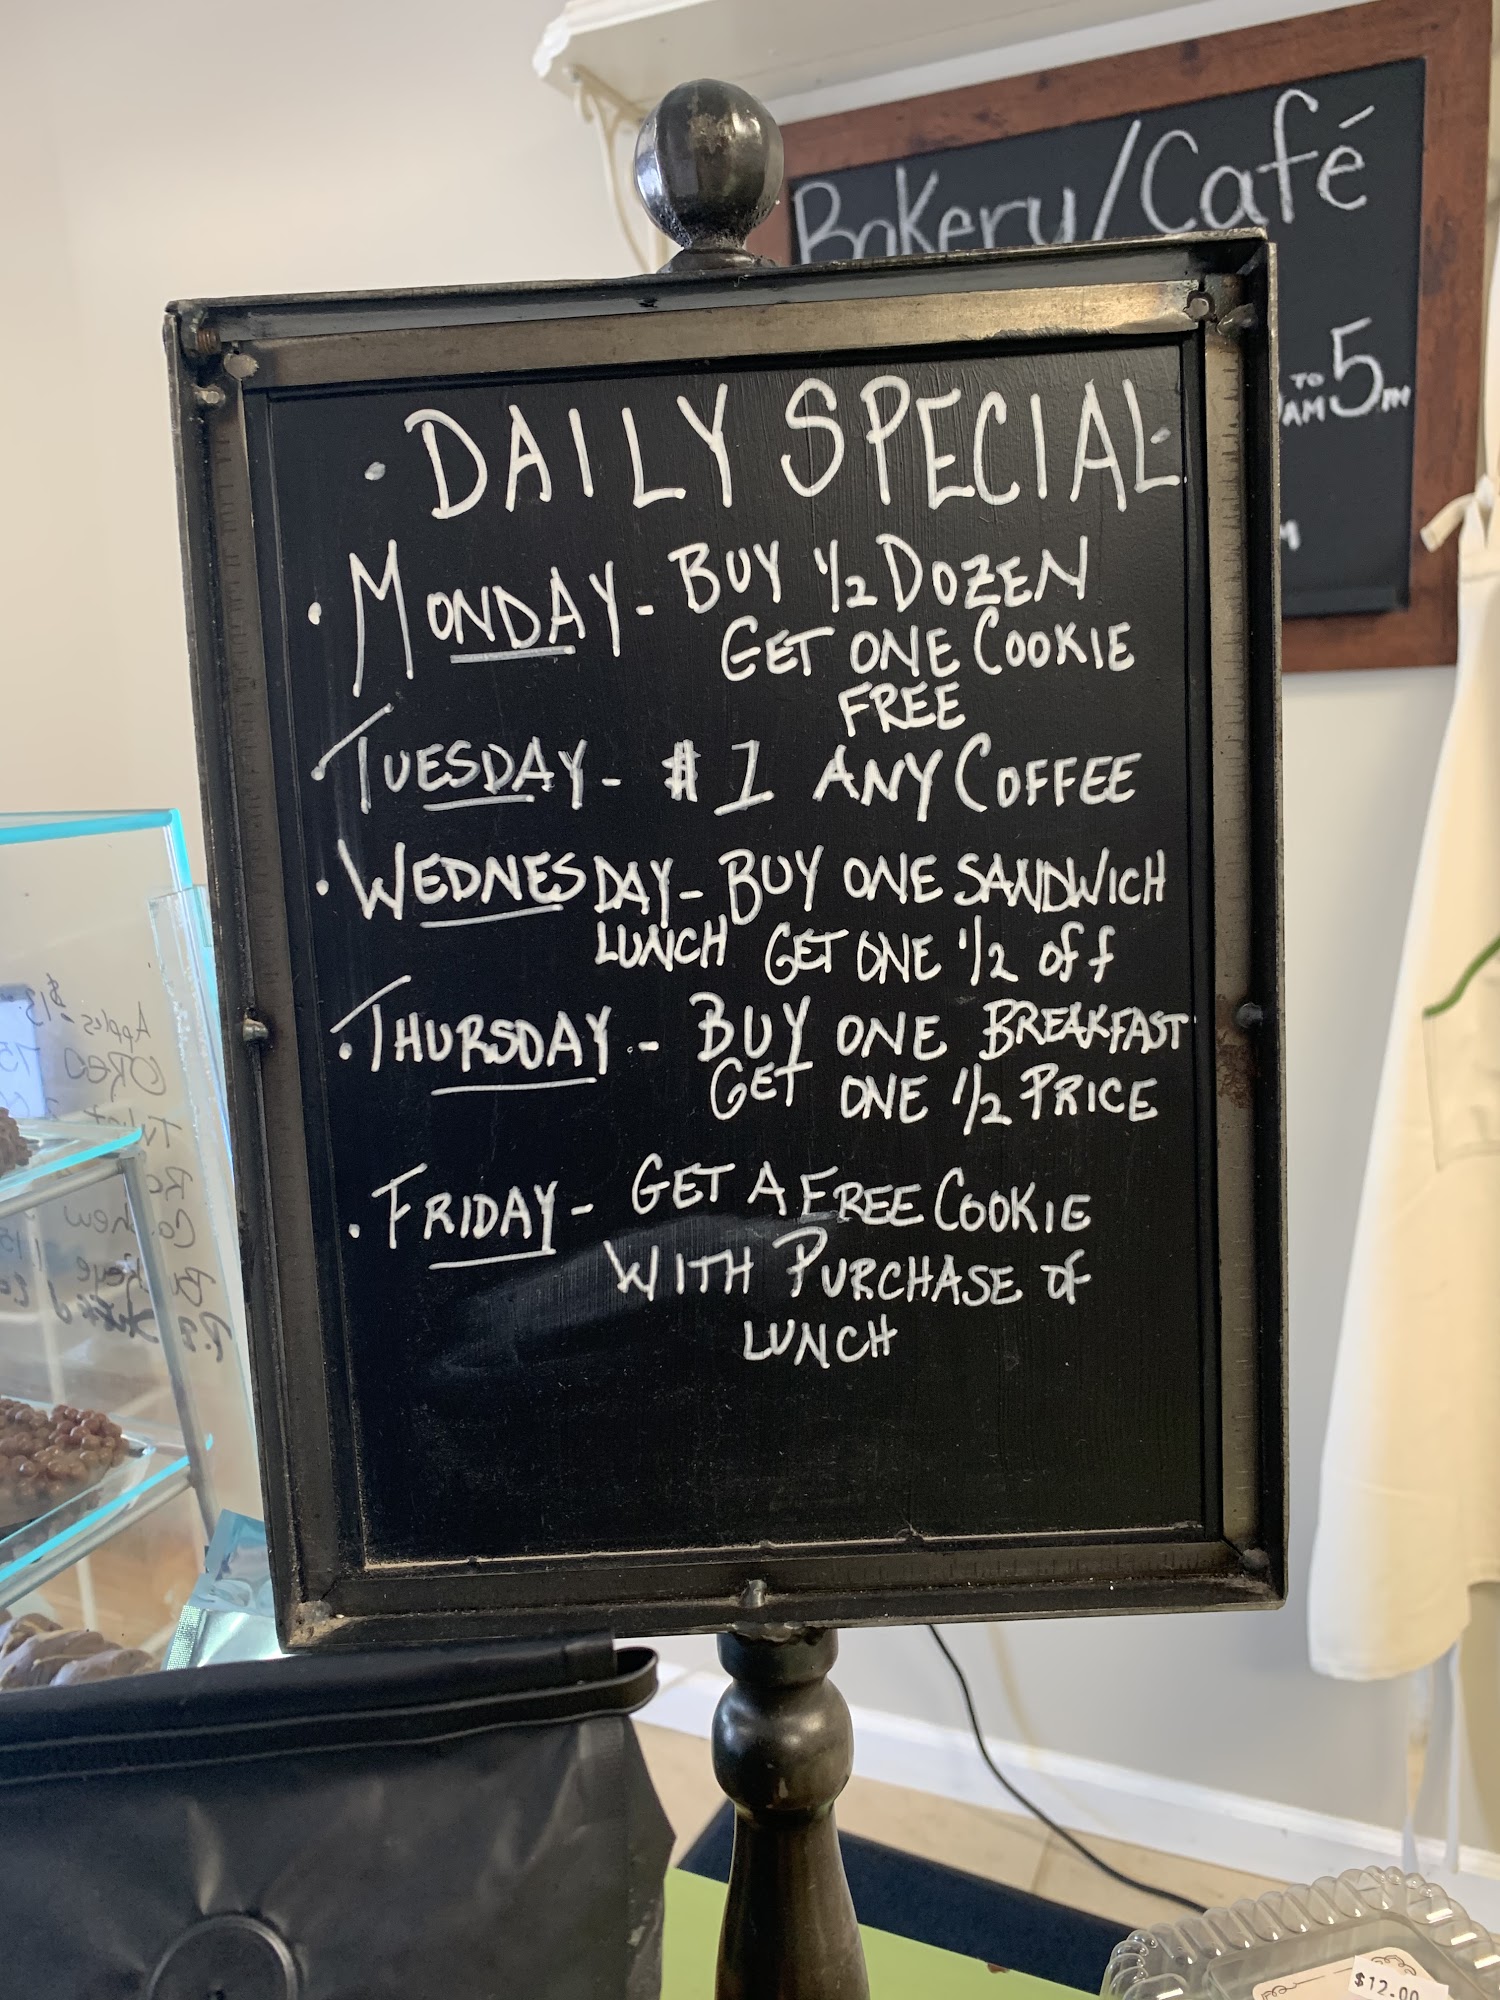 Bakery/Café
TO
AM 5PM
· DAILY SPECIAL ·
· MONDAY - BUY 1/2 DOZEN
GET ONE COOKIE
FREE
· TUESDAY - $1 ANY COFFEE
· WEDNESDAY - BUY ONE SANDWICH
LUNCH GET ONE 1/2 Off
· THURSDAY - BUY ONE BREAKFAST
GET ONE 1/2 PRICE
· FRIDAY - GET A FREE COOKIE
WITH PURCHASE OF
LUNCH
Apples - $13
OREO
$12.00